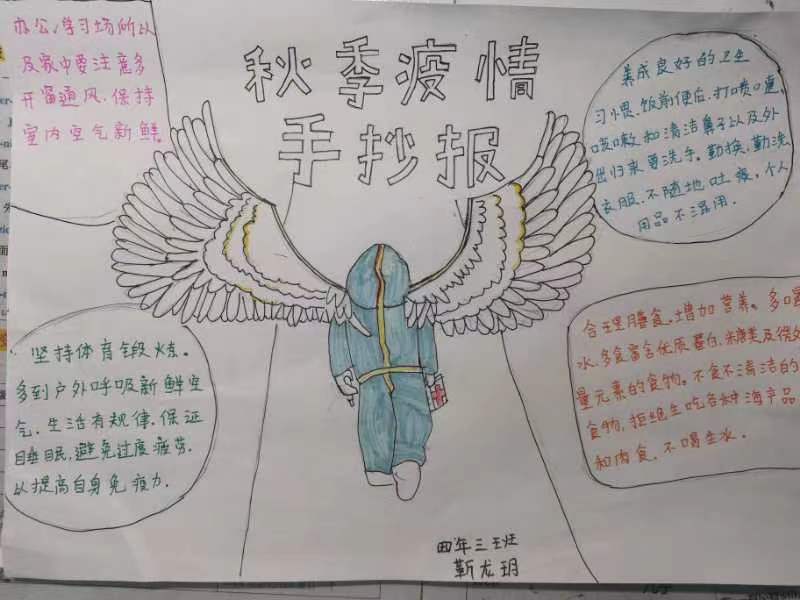 秋季疫情
手抄报
办公、学习场所以
及家中要注意多
开窗通风，保持
室内空气新鲜。
养成良好的卫生
习惯、饭前便后、打喷嚏、
咳嗽和清洁鼻子以及外
出归来要洗手。勤换、勤洗
衣服、不随地吐痰，个人
用品不混用.
坚持体育锻炼。
多到户外呼吸新鲜空
气、生活有规律、保证
睡眠，避免过度疲劳.
以提高自身免疫力.
合理膳食、增加营养。多喝
水、多食富含优质蛋白、糖类及微
量元素的食物。不食不清洁的
食物，拒绝生吃各种海产品
和肉食、不喝生水.
四年三班
靳龙玥